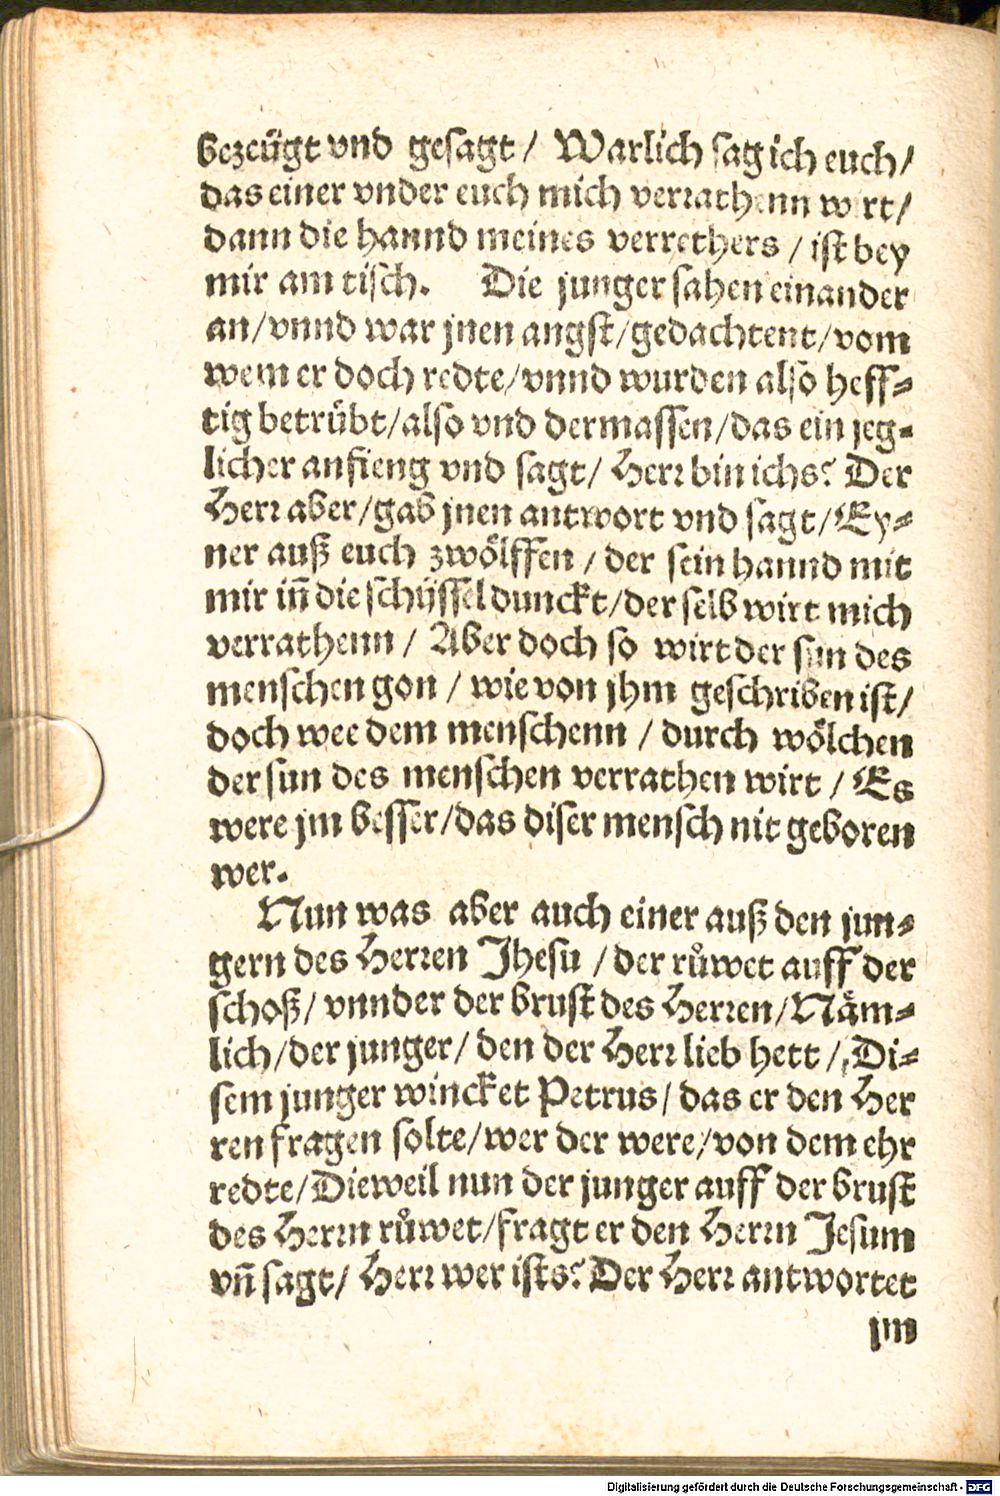 bezeügt vnd gesagt / Warlich sag ich euch /
das einer vnder euch mich verrathenn wirt /
dann die hannd meines verrethers / ist bey
mir am tisch. Die junger sahen einander
an / vnnd war jnen angst / gedachtent / vom
wem er doch redte / vnnd wurden also heff⸗
tig betrübt / also vnd dermassen / das ein jeg⸗
licher anfieng vnd sagt / Herr bin ichs? Der
Herr aber / gab jnen antwort vnd sagt / Ey⸗
ner auß euch zwölffen / der sein hannd mit
mir iñ die schüssel dunckt / der selb wirt mich
verrathenn / Aber doch so wirt der sun des
menschen gon / wie von jhm geschriben ist /
doch wee dem menschenn / durch wölchen
der sun des menschen verrathen wirt / Es
were jm besser / das diser mensch nit geboren
wer.
Nun was aber auch einer auß den jun⸗
gern des Herren Jhesu / der růwet auff der
schoß / vnnder der brust des Herren / Näm⸗
lich / der junger / den der Herr lieb hett / Di⸗
sem junger wincket Petrus / das er den Her
ren fragen solte / wer der were / von dem ehr
redte / Dieweil nun der junger auff der brust
des Herrn růwet / fragt er den Herrn Jesum
vñ sagt / Herr wer ists? Der Herr antwortet
jm
Digitalisierung gefördert durch die Deutsche Forschungsgemeinschaft - DFG